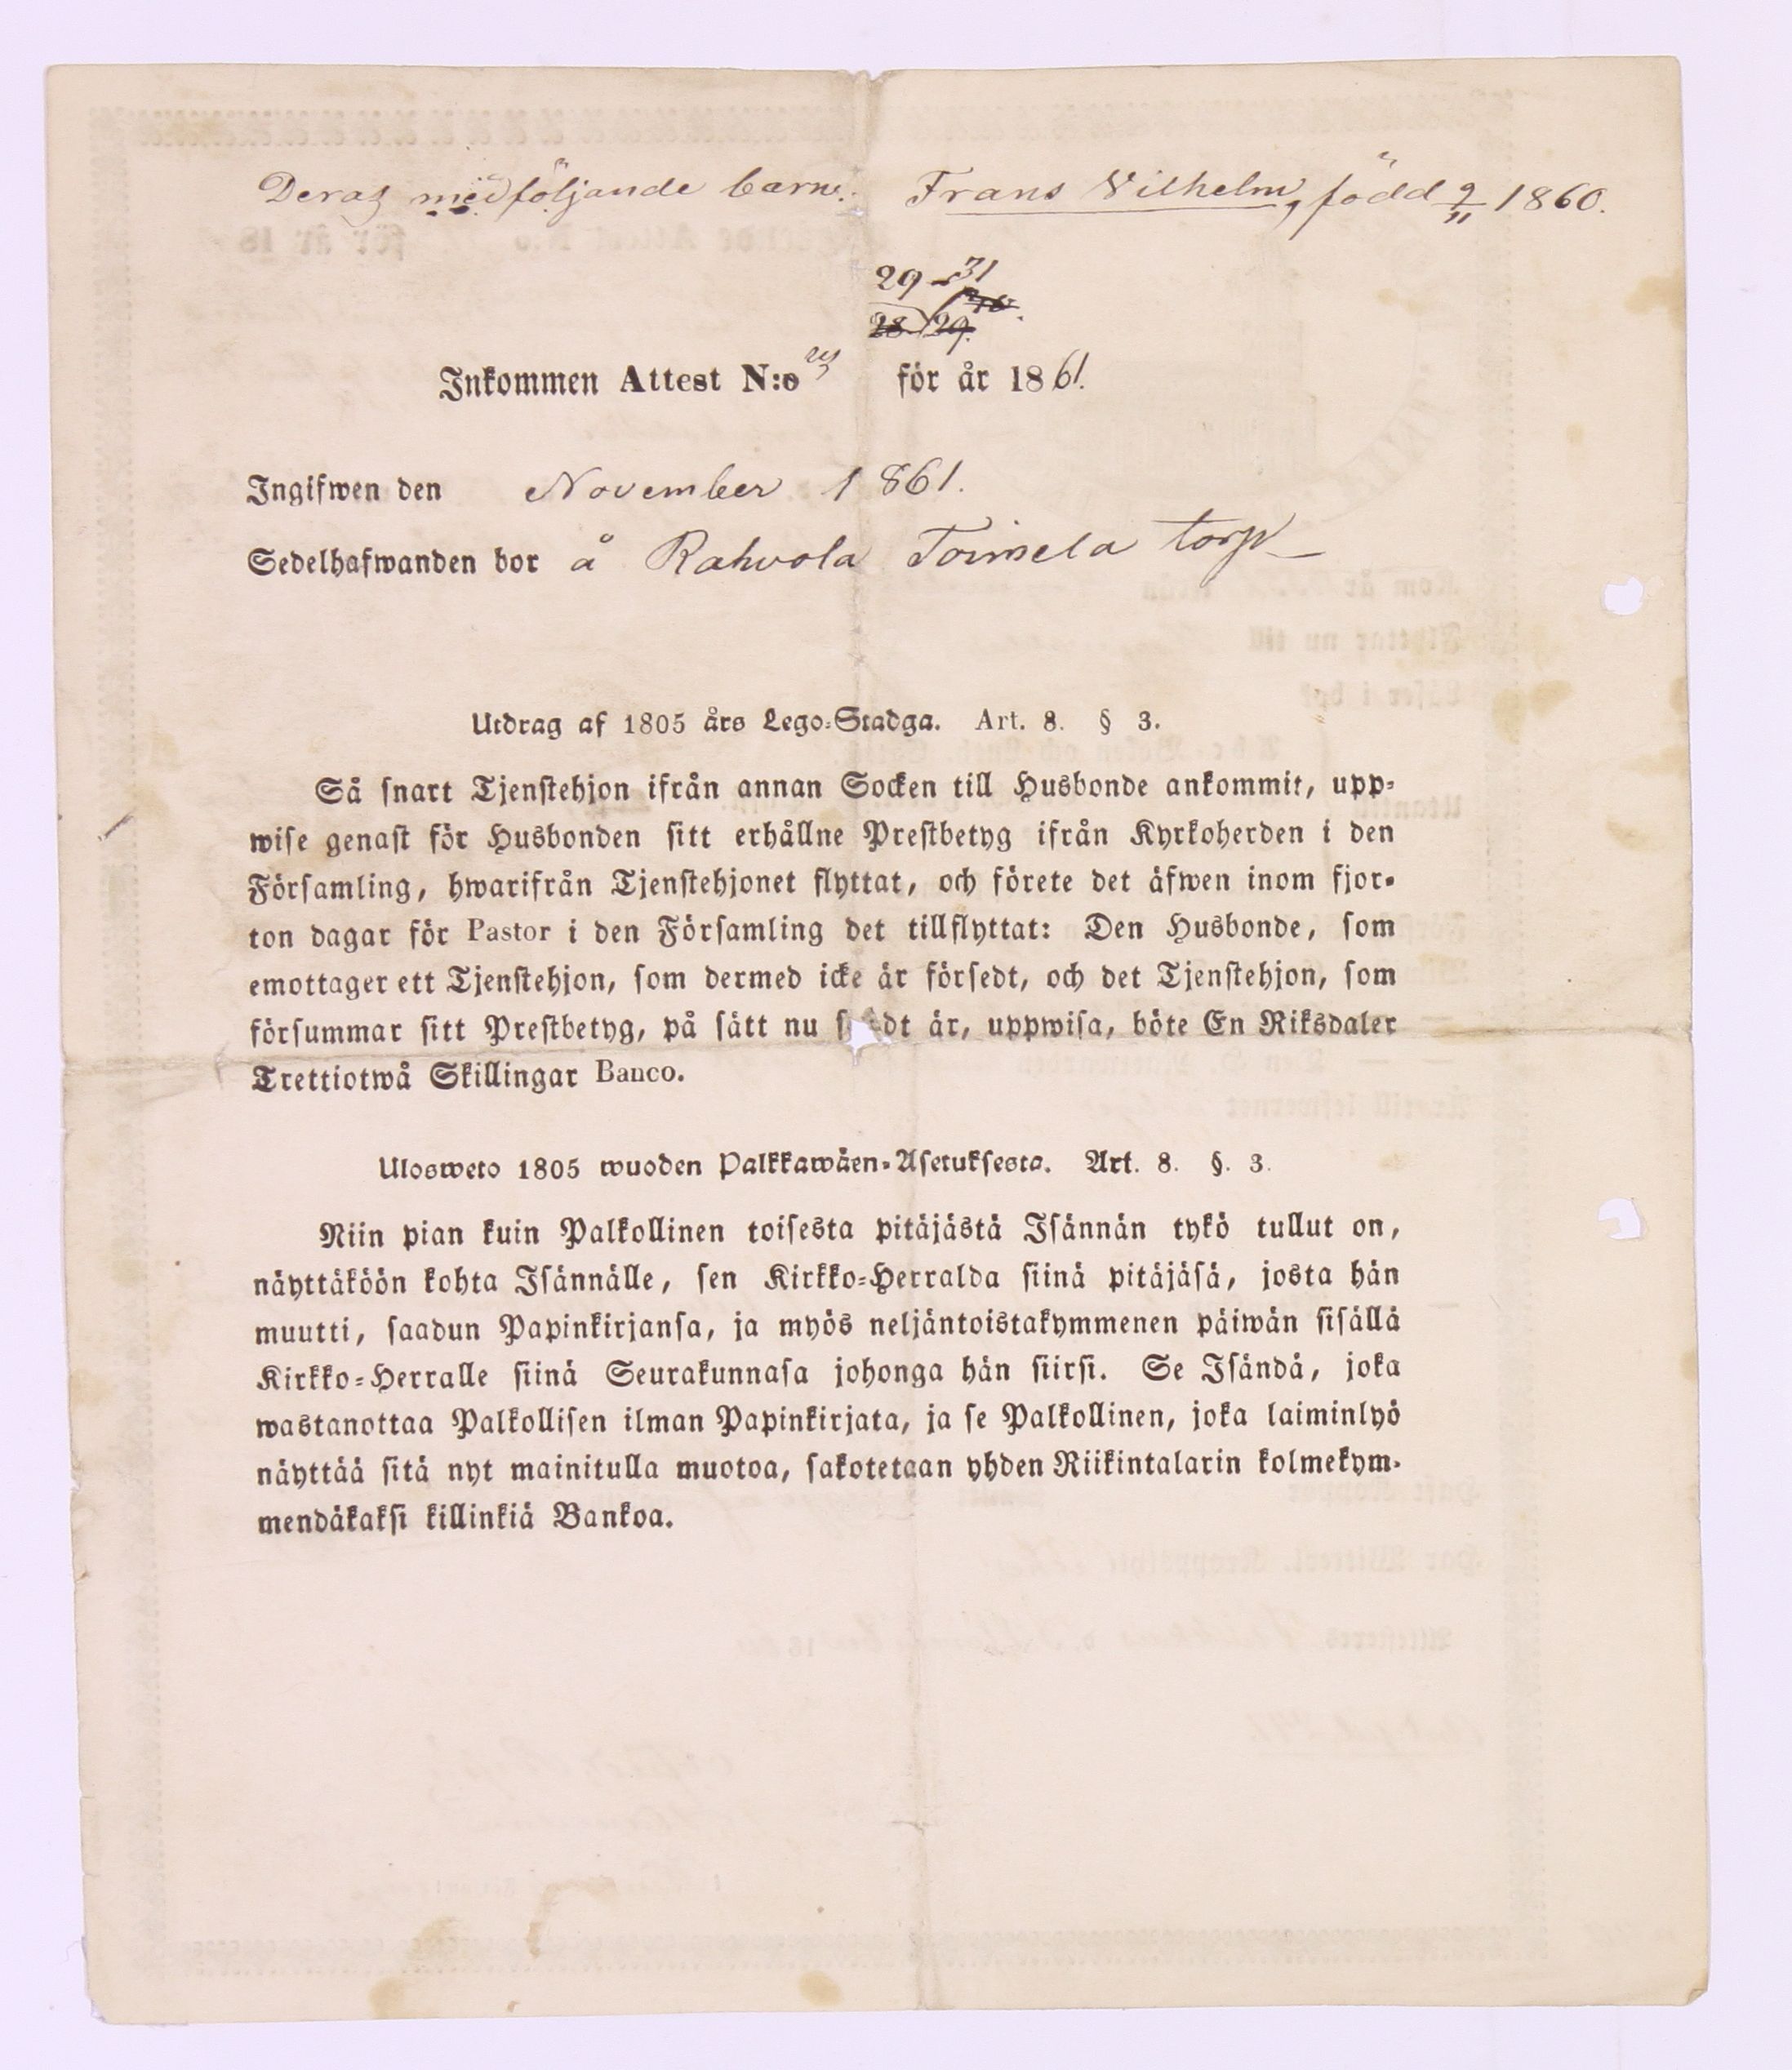 Deras medföljande barn: Frans Vilhelm, född 9/11 1860.
29-31
28 29.
Inkommen Attest N:o för år 1861.
Ingifwen den November 1861.
Sedelhafwanden bor å Rahvola Toimela torp
Utdrag af 1805 års Lego-Stadga. Art. 8. § 3.
Så snart Tjenstehjon ifrån annan Socken till Husbonde ankommit, upp-
wise genast för Husbonden sitt erhållne Prestbetyg ifrån Kyrkoherden i den
Församling, hwarifrån Tjenstehjonet flyttat, och förete det äfwen inom fjor-
ton dagar för Pastor i den Församling det tillflyttat: Den Husbonde, som
emottager ett Tjenstehjon, som dermed icke är försedt, och det Tjenstehjon, som
försummar sitt Prestbetyg, på sätt nu s dt är, uppwisa, böte En Riksdaler
Trettiotwå Skillingar Banco.
Ulosweto 1805 wuoden Palkkawäen-Asetuksesta. Art. 8. §. 3.
Niin pian kuin Palkollinen toisesta pitäjästä Isännän tykö tullut on,
näyttäköön kohta Isännälle, sen Kirkko-Herralda siinä pitäjäsä, josta hän
muutti, saadun Papinkirjansa, ja myös neljäntoistakymmenen päiwän sisällä
Kirkko-Herralle siinä Seurakunnasa johonga hän siirsi. Se Isändä, joka
wastanottaa Palkollisen ilman Papinkirjata, ja se Palkollinen, joka laiminlyö
näyttää sitä nyt mainitulla muotoa, sakotetaan yhden Riikintalarin kolmekym-
mendäkaksi killinkiä Bankoa.